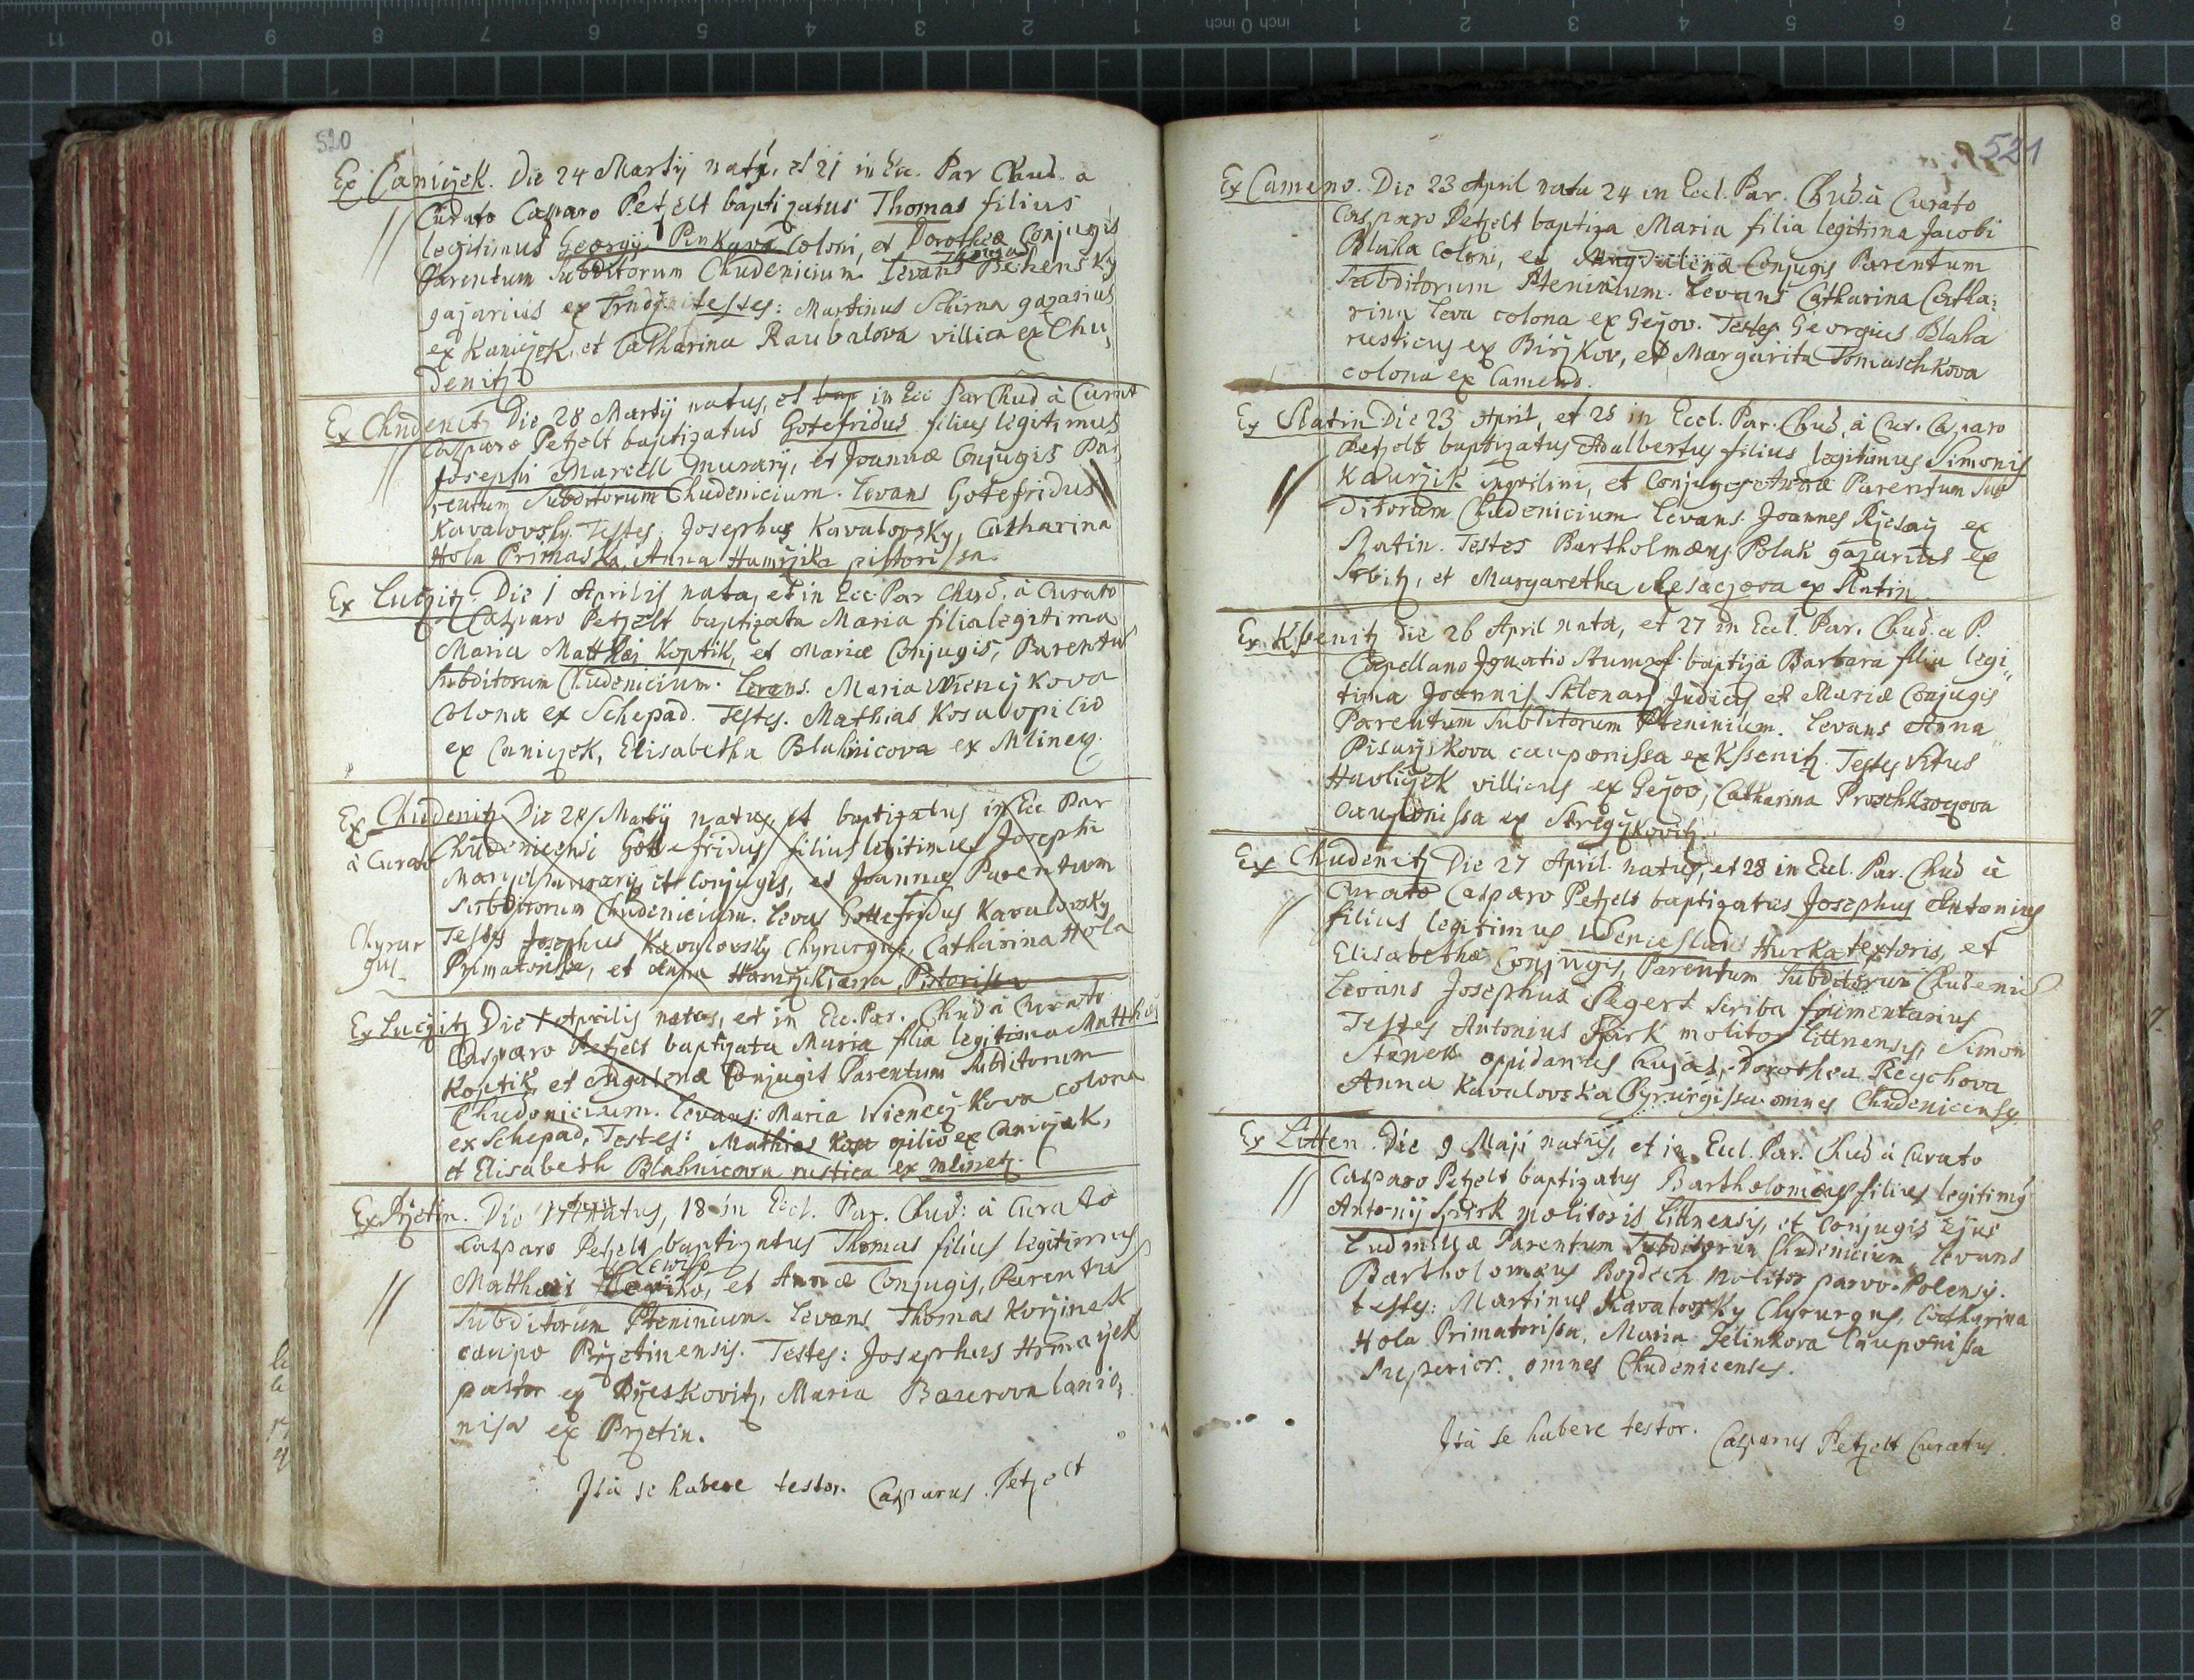 520
Ex Caniczek. Die 24 Martij natq, et 21 in Ecc. Par Chud. a
Curato Casparo Petzelt baptizatus Thomas filius
legitimus Georgij Pinkava coloni, et Dorotheæ Conjugis
Thomas
Parentum Subditorum Chudenicium. Levans Bechensky
gazarius ex testes: Martinus Schirna gazarius
ex Kaniczek, et Catharina Raubalova villica ex Chu,
denitz
Ex Chudenitz Die 28 Martij natus, et bap in Ecc Par Chud à Curat
Casparo Petzelt baptizatus Gotefridus filius legitimus
Josephi Marcell murarij, et Joannæ Conjugis Pa,
rentum Subditorum Chudenicium. Levans Gotefridus
Kavalovsky. Testes. Josephus Kavalovsky, Catharina
Hola Primaska, Anna Hamrjika pistorissa.
Ex Luczitz. Die 1 Aprilis nata, et in Ecc. Par Chud. à Curato
Casparo Petzelt baptizata Maria filia legitima
Maria Matthæi Koptik, et Mariæ Conjugis, Parentu
Subditorum Chudenicium. Levans. Maria Wienczykova
Colona ex Schepad. Testes. Mathias Kosa opilio
ex Caniczek, Elisabetha Blahnicova ex Mlinecz.
Ex Chudenitz Die 28 Martij natus, et baptizatus in Ecc Par
à Curato Chudenicensi Gottefridus filius legitimus Josephi
murarij, et Conjugis, et Joannæ Parentum
Subditorum Chudenicium. Levas Gottefridus Kavalovsky
Chyrur
gus
Testes Josephus Kavalovsky Chyrurgus, Catharina Hola
Primatorissa, et Anna Pistorissa
Ex Luczitz Die 1 Aprilis natus, et in Ecc. Par. Chud à Curato
Casparo Petzelt baptizata Maria filia legitima Matthæi
Koptik, et Magdalenæ Conjugis Parentum Subditorum
Chudenicium. Levans: Maria Wienczykova colona
ex Schepad, Testes: Mathias Kosa opilio ex Caniczek,
et Elisabeth Blahnicova rustica ex mlinetz.
Ex Przetin. Die 17 natus, 18 in Eccl. Par. Chud: à Curato
Casparo Petzelt baptizatus Thomas filius legitimus
Matthæi et Annæ Conjugis, Parentu
Subditorum Ptenincium. Levans Thomas Korzinek
caupo Przetinensis. Testes: Josephus Hrmaczek
pastor ex Brzeskovitz, Maria Baurova lanio,
nisa ex Przetin.
Ità se habere testor. Casparus Petzelt
521
Ex Cameno. Die 23 April nata 24 in Eccl. Par. Chud. à Curato
Casparo Petzelt baptiza Maria filia legitima Jacobi
Blaha Coloni, et Magdalenæ Conjugis Parentum
Subditorum Ptenincium. Levans Catharina Catha,
rina Leva colona ex Gezov. Testes Georgius Blaha
rusticus ex Birzkov, et Margarita Tomaschkova
colona ex Cameno.
Ex Slatin Die 23 April, et 25 in Eccl. Par. Chud, à Cur. Casparo
Petzelt baptizatus Adalbertus filius legitimus Simonis
Kaurzik inquilini, et Conjuges Annæ Parentum Sub
ditorum Chudenicium. Levans. Joannes Rzesacz ex
Slatin. Testes Bartholmæus Polak gazarius ex
Srbitz, et Margaretha Resaczova ex Slatin.
Ex Kssenitz die 26 April nata, et 27 in Eccl. Par. Chud. a P.
Capellano Ignatio Stumpf baptiza Barbara filia legi,,
tima Joannis Sklenarz Judicis et Mariæ Conjugis
Parentum Subditorum Ptenincium. Levans Anna
Pisarzikova cauponissa ex Kssenitz. Testes Vitus
Havliczek villicus ex Gezov, Catharina
cauponissa ex Strzezikovitz.
Ex Chudenitz Die 27 April. natus, et 28 in Eccl. Par. Chud à
Curato Casparo Petzelt baptizatus Josephus Antonius
filius legitimus Wenceslai Hurka textoris, et
Elisabethæ Conjugis, Parentum Subditorum Chudenic
Levans Josephus Siegert Scriba frumentarius
Testes Antonius Spirk molitor Littnensis, Simon
Stanek oppidanus Cujas, Dorothea Reychova
Anna Kavalovska Chyrurgissa omnes Chudenicenses
Ex Litten. Die 9 Maji natus, et in Eccl. Par. Chud à Curato
Casparo Petzelt baptizatus Bartholomæus filius legitimq
Antonij Spirk molitoris Littnensis, et Conjugis Ejus
Ludmillæ Parentum Subditorum Chudenicium. Levans
Bartholomæus Bojdech Molitor parvo-Polensis.
testes: Martinus Kavalovsky Chyrurgus, Catharina
Hola Primatorissa, Maria Jelinkova Cauponissa
Superior. omnes Chudenicenses.
Ità se habere testor. Casparus Petzelt Curatus.